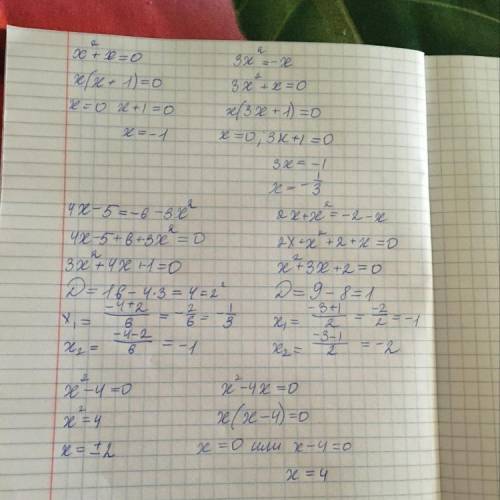 x²+x=0
x(x+1)=0
x=0 x+1=0
x=-1
3x²=-x
3x²+x=0
x(3x+1)=0
x=0, 3x+1=0
3x=-1
x=-1/3
4x-5=-6-3x²
4x-5+6+3x²=0
3x²+4x+1=0
D=16-4·3=4=2²
x₁=(-4+2)/6=-2/6=-1/3
x₂=(-4-2)/6=-1
2x+x²=-2-x
2x+x²+2+x=0
x²+3x+2=0
D=9-8=1
x₁=(-3+1)/2=-2/2=-1
x₂=(-3-1)/2=-2
x²-4=0
x²=4
x=±2
x²-4x=0
x(x-4)=0
x=0 или x-4=0
x=4